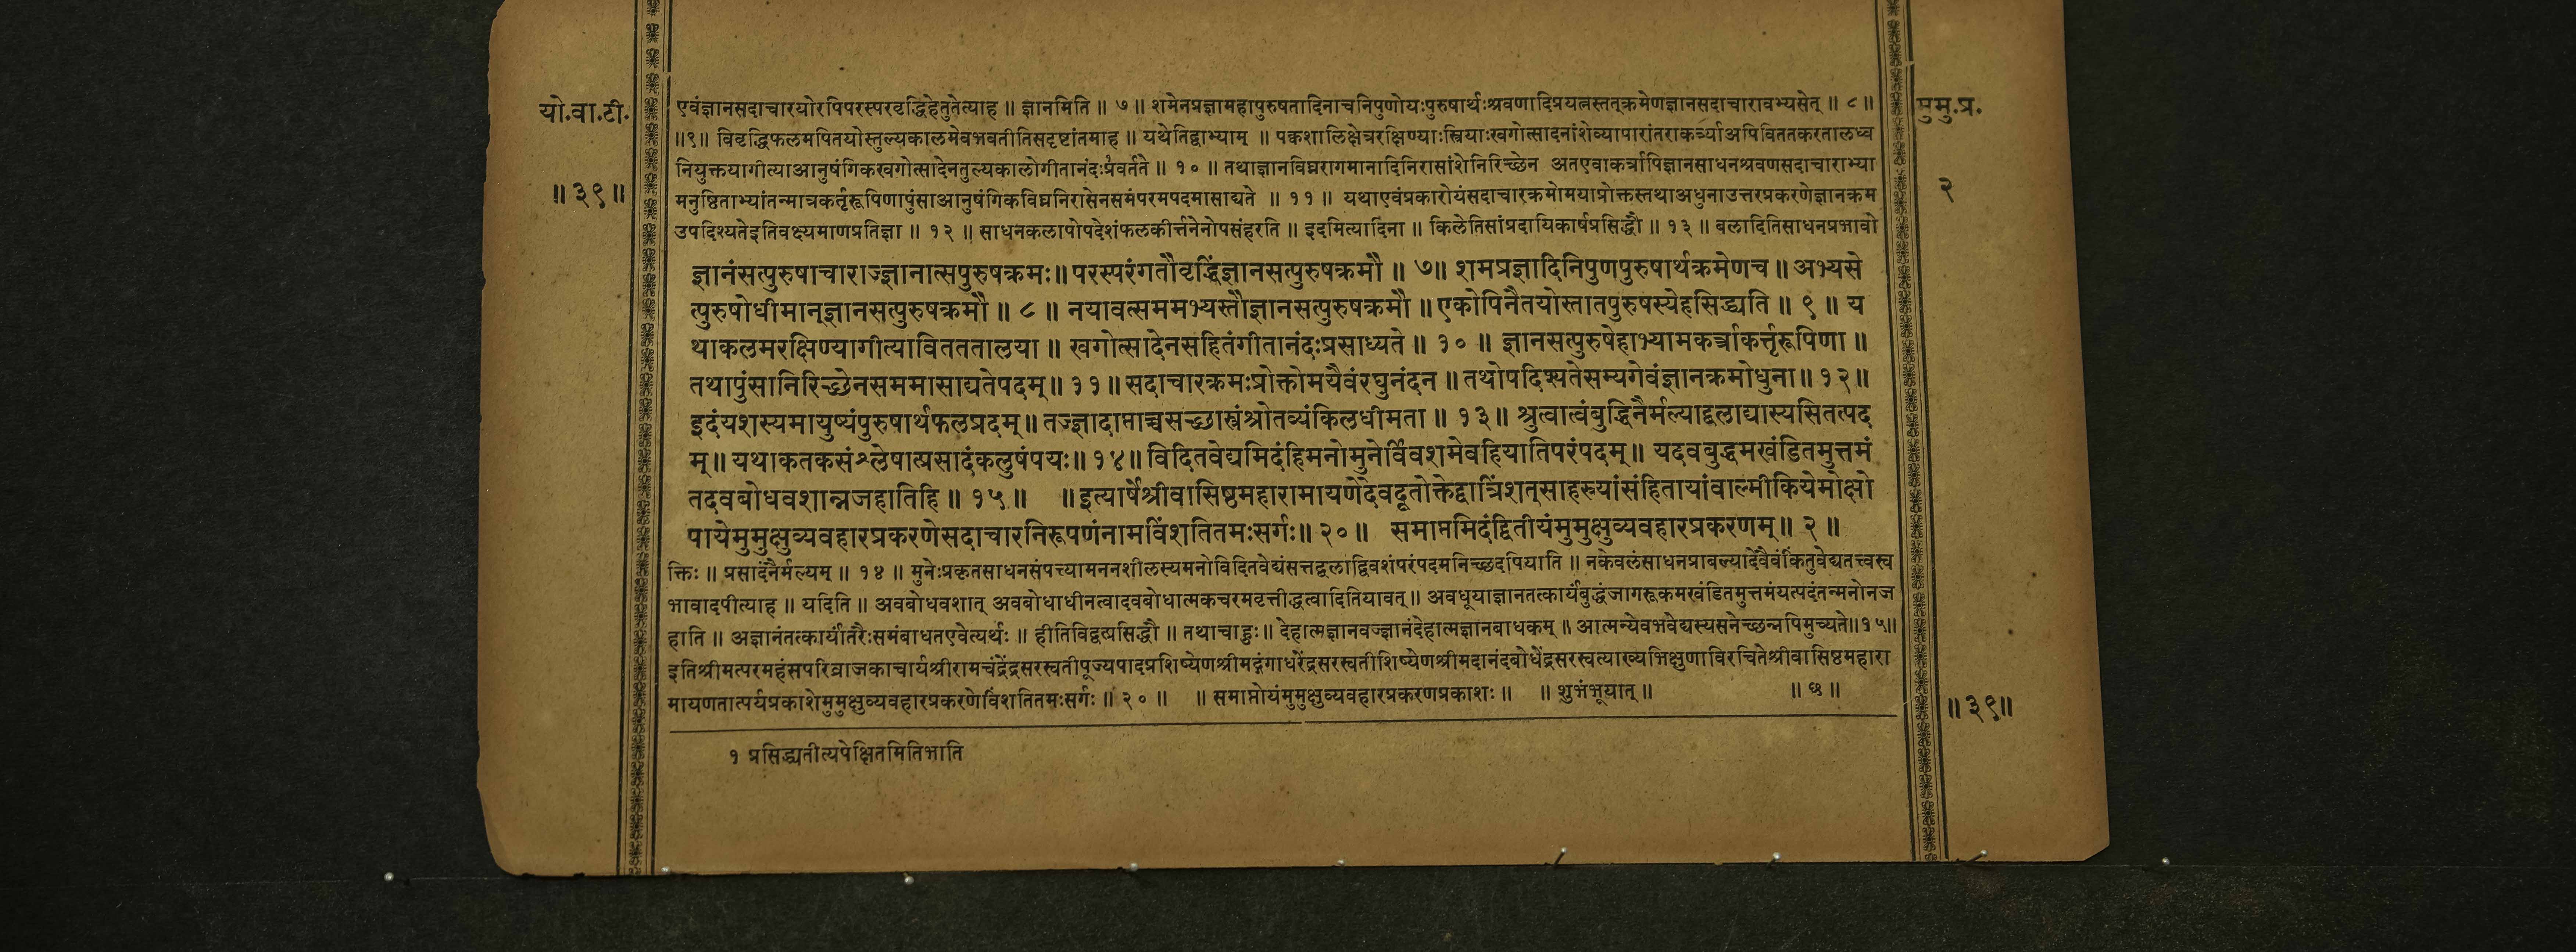 यो.वा.टी.
॥ ३९ ॥
एवंज्ञानसदाचारयोरपिपरस्परवृद्धिहेतुतेत्याह ॥ ज्ञानमिति ॥ ७ ॥ शमेनप्रज्ञामहापुरुषतादिनाचनिपुणोयःपुरुषार्थःश्रवणादिप्रयत्नस्तत्क्रमेणज्ञानसदाचारावभ्यसेत् ॥ ८ ॥
॥९॥ विवृद्धिफलमपितयोस्तुल्यकालमेवभवतीतिसदृष्टांतमाह ॥ यथेतिद्वाभ्याम् ॥ पक्कशालिक्षेत्ररक्षिण्याःस्त्रियाःखगोत्सादनांशेव्यापारांतराकर्त्र्याअपिविततकरतालध्व
नियुक्तयागीत्याआनुषंगिकखगोत्सादेनतुल्यकालोगीतानंदःप्रवर्तते ॥ १० ॥ तथाज्ञानविघ्नरागमानादिनिरासांशेनिरिच्छेन अतएवाकर्त्रापिज्ञानसाधनश्रवणसदाचाराभ्या
मनुष्ठिताभ्यांतन्मात्रकर्तृरूपिणापुंसाआनुषंगिकविघ्ननिरासेनसमंपरमपदमासाद्यते ॥ ११ ॥ यथाएवंप्रकारोयंसदाचारक्रमोमयाप्रोक्तस्तथाअधुनाउत्तरप्रकरणेज्ञानक्रम
उपदिश्यतेइतिवक्ष्यमाणप्रतिज्ञा ॥ १२ ॥ साधनकलापोपदेशंफलकीर्त्तनेनोपसंहरति ॥ इदमित्यादिना ॥ किलेतिसांप्रदायिकार्षप्रसिद्धौ ॥ १३ ॥ बलादितिसाधनप्रभावो
ज्ञानंसत्पुरुषाचाराज्ज्ञानात्सपुरुषक्रमः॥ परस्परंगतौवृद्धिंज्ञानसत्पुरुषक्रमौ ॥ ७॥ शमप्रज्ञादिनिपुणपुरुषार्थक्रमेणच ॥ अभ्यसे
त्पुरुषोधीमान्ज्ञानसत्पुरुषक्रमौ ॥ ८ ॥ नयावत्सममभ्यस्तौज्ञानसत्पुरुषक्रमौ ॥ एकोपिनैतयोस्तातपुरुषस्येहसिद्ध्यति ॥ ९ ॥ य
थाकलमरक्षिण्यागीत्याविततततालया ॥ खगोत्सादेनसहितंगीतानंदःप्रसाध्यते ॥ १० ॥ ज्ञानसत्पुरुषेहाभ्यामकर्त्राकर्त्तृरूपिणा ॥
तथापुंसानिरिच्छेनसममासाद्यतेपदम् ॥ ११ ॥ सदाचारक्रमःप्रोक्तोमयैवंरघुनंदन ॥ तथोपदिश्यतेसम्यगेवंज्ञानक्रमोधुना ॥ १२॥
इदंयशस्यमायुष्यंपुरुषार्थफलप्रदम् ॥ तज्ज्ञादाप्ताच्चसच्छास्त्रंश्रोतव्यंकिलधीमता ॥ १३॥ श्रुत्वात्वंबुद्धिनैर्मल्याद्बलाद्यास्यसितत्पद
म् ॥ यथाकतकसंश्लेषात्प्रसादंकलुषंपयः॥ १४॥ विदितवेद्यमिदंहिमनोमुनेर्विवशमेवहियातिपरंपदम् ॥ यदवबुद्धमखंडितमुत्तमं
तदवबोधवशान्नजहातिहि ॥ १५ ॥ ॥ इत्यार्षेश्रीवासिष्ठमहारामायणेदेवदूतोक्तेद्वात्रिंशत्साहस्र्यांसंहितायांवाल्मीकियेमोक्षो
पायेमुमुक्षुव्यवहारप्रकरणेसदाचारनिरूपणंनामविंशतितमःसर्गः॥ २० ॥ समाप्तमिदंद्वितीयंमुमुक्षुव्यवहारप्रकरणम् ॥ २ ॥
क्तिः ॥ प्रसादंनैर्मल्यम् ॥ १४ ॥ मुनेःप्रकृतसाधनसंपत्त्यामननशीलस्यमनोविदितवेद्यंसत्तद्बलाद्विवशंपरंपदमनिच्छदपियाति ॥ नकेवलंसाधनप्राबल्यादेवैवंकिंतुवेद्यतत्त्वस्व
भावादपीत्याह ॥ यदिति ॥ अवबोधवशात् अवबोधाधीनत्वादवबोधात्मकचरमवृत्तीद्धत्वादितियावत् ॥ अवधूयाज्ञानतत्कार्यंबुद्धंजागरूकमखंडितमुत्तमंयत्पदंतन्मनोनज
हाति ॥ अज्ञानंतत्कार्यांतरैःसमंबाधतएवेत्यर्थः ॥ हीतिविद्वत्प्रसिद्धौ ॥ तथाचाहुः॥ देहात्मज्ञानवज्ज्ञानंदेहात्मज्ञानबाधकम् ॥ आत्मन्येवभवेद्यस्यसनेच्छन्नपिमुच्यते॥१५॥
इतिश्रीमत्परमहंसपरिव्राजकाचार्यश्रीरामचंद्रेंद्रसरस्वतीपूज्यपादप्रशिष्येणश्रीमद्गंगाधरेंद्रसरस्वतीशिष्येणश्रीमदानंदबोधेंद्रसरस्वत्याख्यभिक्षुणाविरचितेश्रीवासिष्ठमहारा
मायणतात्पर्यप्रकाशेमुमुक्षुव्यवहारप्रकरणेविंशतितमःसर्गः ॥ २० ॥ ॥ समाप्तोयंमुमुक्षुव्यवहारप्रकरणप्रकाशः ॥ ॥ शुभंभूयात् ॥ ॥ छ ॥
१ प्रसिद्ध्यतीत्यपेक्षितमितिभाति
मुमु.प्र.
२
॥ ३९॥